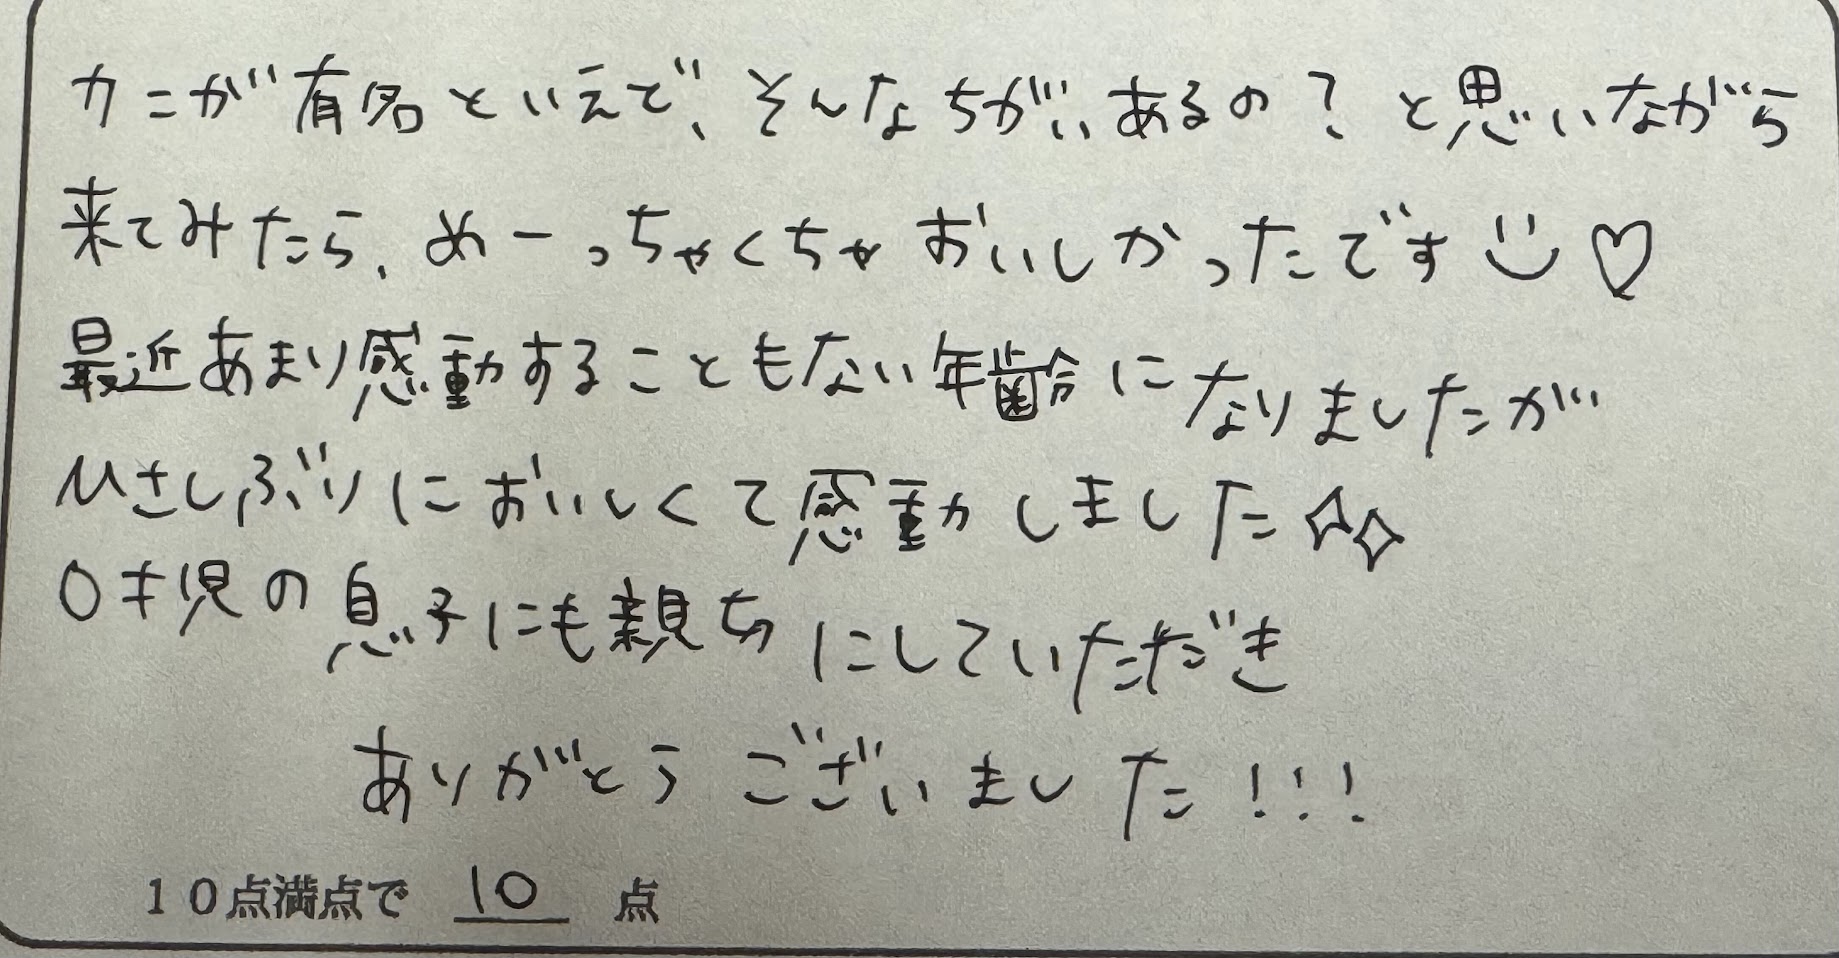 カニが有名といえど、そんなちがいあるの？と思いながら
来てみたら、めーっちゃくちゃおいしかったです☺♡
最近あまり感動することもない年齢になりましたが
ひさしぶりにおいしくて感動しました✧✧
0才児の息子にも親切にしていただき
ありがとうございました!!!
10点満点で 10 点